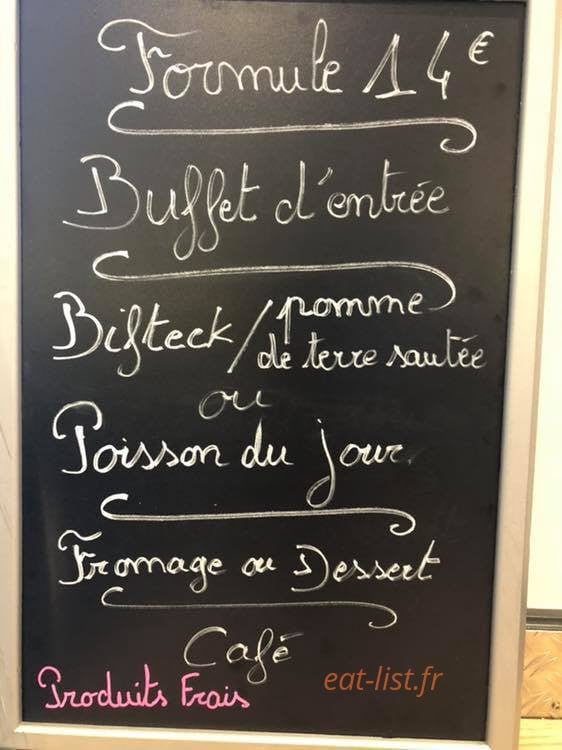 Formule 14€
Buffet d'entrée
Bifteck / pomme
de terre sautée
ou
Poisson du jour
Fromage ou Dessert
Café
Produits Frais
eat-list.fr